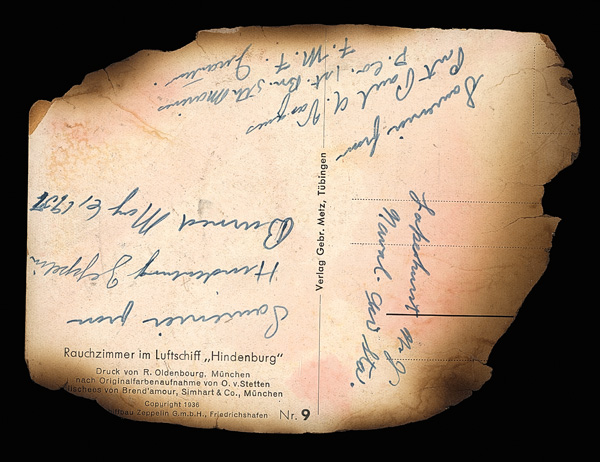 Souvenir from
Hindenburg Zeppelin
Burned May 6, 1937
Souvenir from
Pvt. Paul A.
Co. Int. Bn. 5th Marines
F. M. F.
Lakehurst N.J.
Naval Air Sta.
Verlag Gebr. Metz, Tübingen
Rauchzimmer im Luftschiff „Hindenburg“
Druck von R. Oldenbourg, München
nach Originalfarbenaufnahme von O. v. Stetten
von Brend'amour, Simhart & Co., München
Copyright 1936
Zeppelin G.m.b.H., Friedrichshafen
Nr. 9